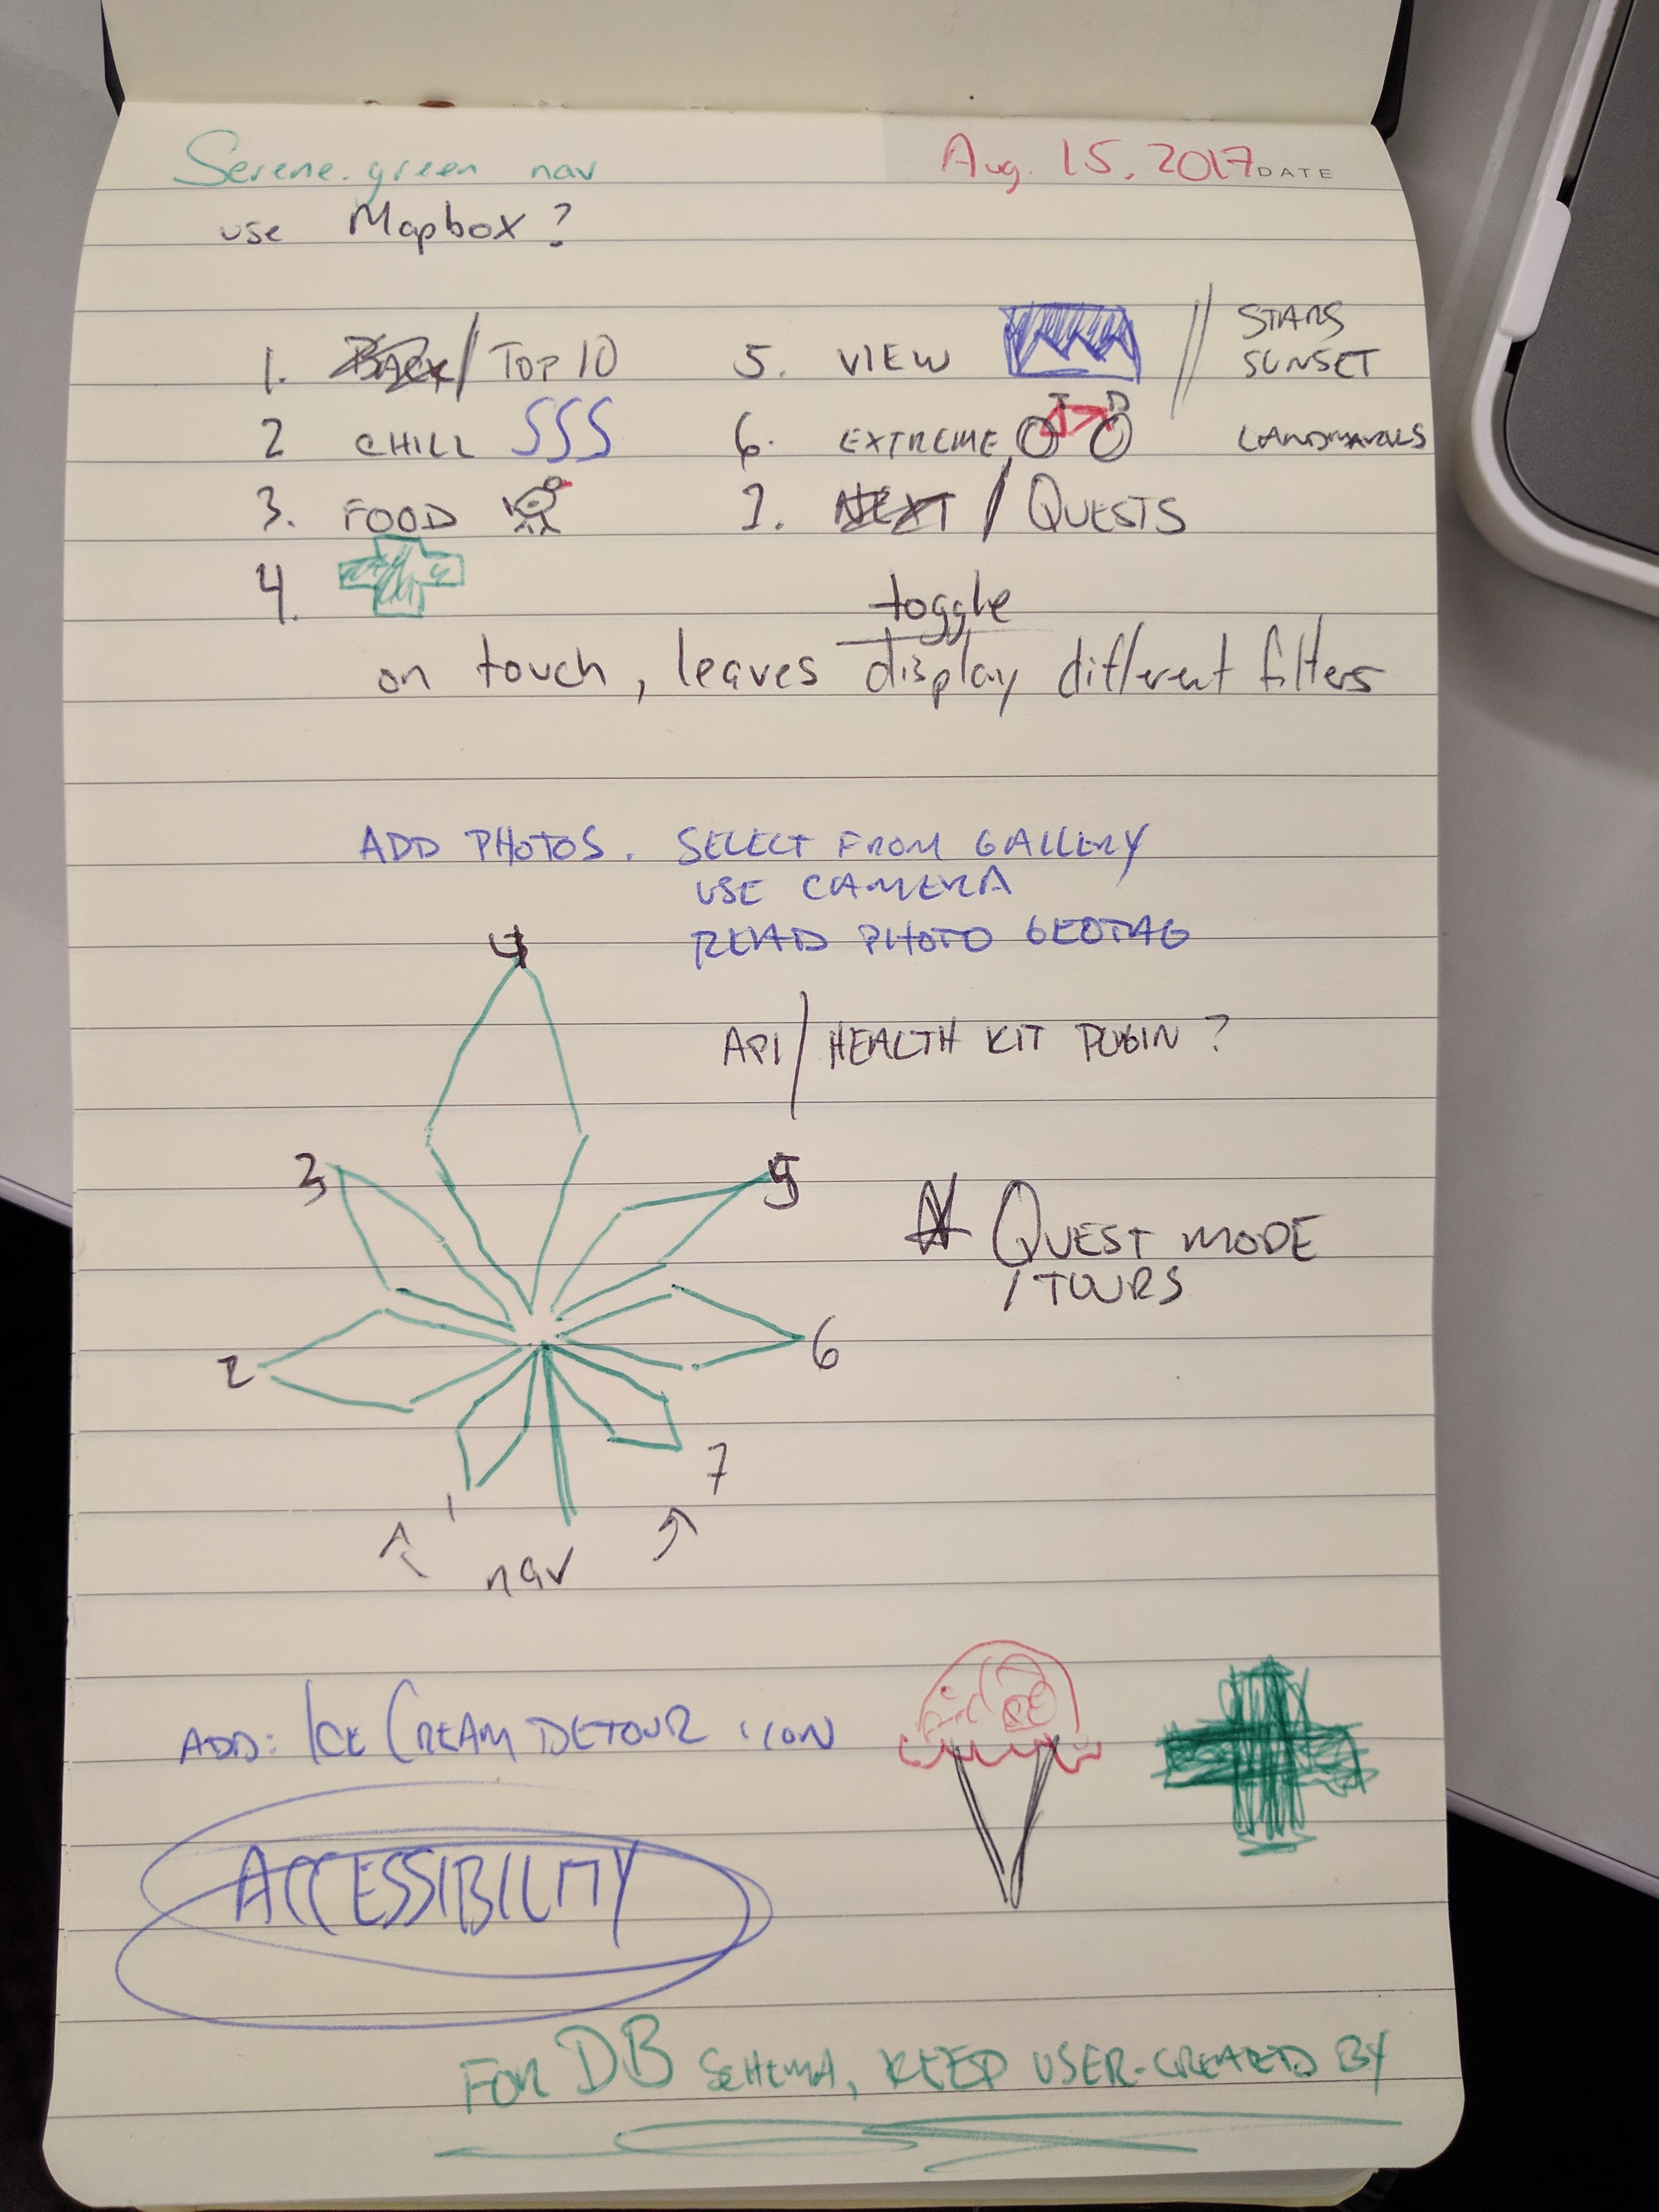 Serene.green nav
Aug. 15, 2017 DATE
use Mapbox?
1. BACK / TOP 10
2 CHILL
3. FOOD
4.
5. VIEW
6. EXTREME
7. NEXT / QUESTS
STARS
SUNSET
LANDMARKS
toggle
on touch, leaves display different filters
ADD PHOTOS. SELECT FROM GALLERY
USE CAMERA
READ PHOTO GEOTAG
API / HEALTH KIT PLUGIN?
4
3
5
QUEST MODE
/TOURS
2
6
7
1
nav
ADD: ICE CREAM DETOUR ICON
ACCESSIBILITY
FOR DB SCHEMA, KEEP USER-CREATED BY